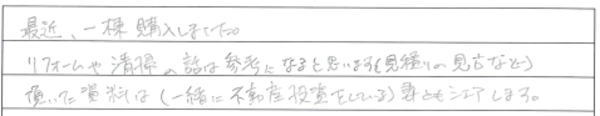 最近、一棟購入しました。
リフォームや清掃の話は参考になると思います(見積りの見方など)
頂いた資料は(一緒に不動産投資をしている)妻ともシェアします。